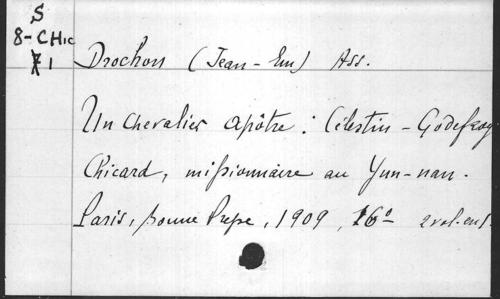 S
8-CHic
1
Drochon (Jean-Em) Ass.
Un Chevalier apôtre : Célestin-Godefroy
Chicard, missionnaire au Yun-nan.
Paris, Bonne Presse, 1909, 16° 2 vol. en 1